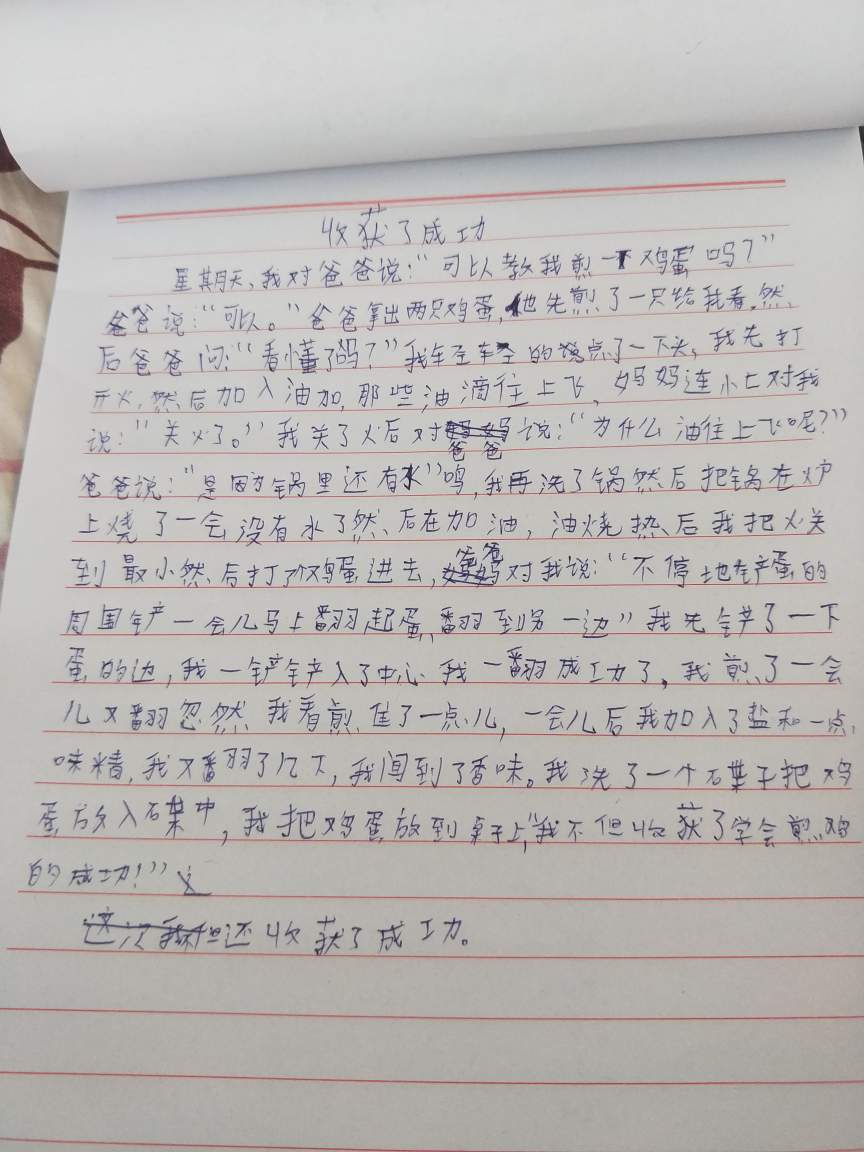 收获了成功
星期天,我对爸爸说:“可以教我煎一下鸡蛋吗?”
爸爸说:“可以。”爸爸拿出两只鸡蛋,他先煎了一只给我看,然
后爸爸问:“看懂了吗?”我轻轻的点了一下头,我先打
开火,然后加入油加,那些油滴往上飞,妈妈连小匕对我
说:“关火了。”我关了火后对爸爸说:“为什么油往上飞呢?”
爸爸说:“是因为锅里还有水”鸣,我再洗了锅然后把锅在炉
上烧了一会没有水了然后在加油,油烧热后我把火关
到最小然后打个鸡蛋进去,爸爸对我说:“不停地铲蛋的
周围铲一会儿马上翻起蛋,翻到另一边”我先铲了一下
蛋的边,我一铲铲入了中心我一翻成功了,我煎了一会
儿又翻忽然我看煎焦了一点儿,一会儿后我加入了盐和一点
味精,我又翻了几下,我闻到了香味。我洗了一个碟子把鸡
蛋放入碟中,我把鸡蛋放到桌子上,“我不但收获了学会煎鸡
的成功!”
这次我不但还收获了成功。